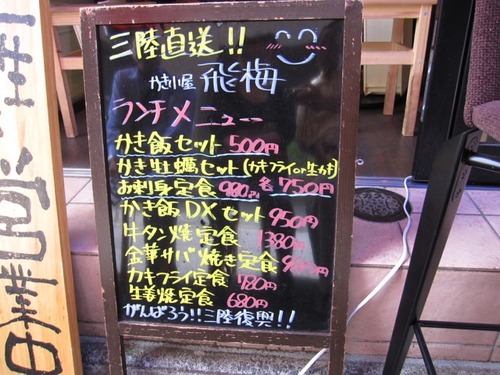 三陸直送!!
かき小屋 飛梅
ランチメニュー
かき飯セット 500円
かき牡蠣セット(カキフライor生かき)
各 750円
お刺身定食 980円
かき飯DXセット 950円
牛タン焼定食 1380円
金華サバ焼き定食
カキフライ定食 780円
生姜焼定食 680円
がんばろう!!三陸復興!!
営業中